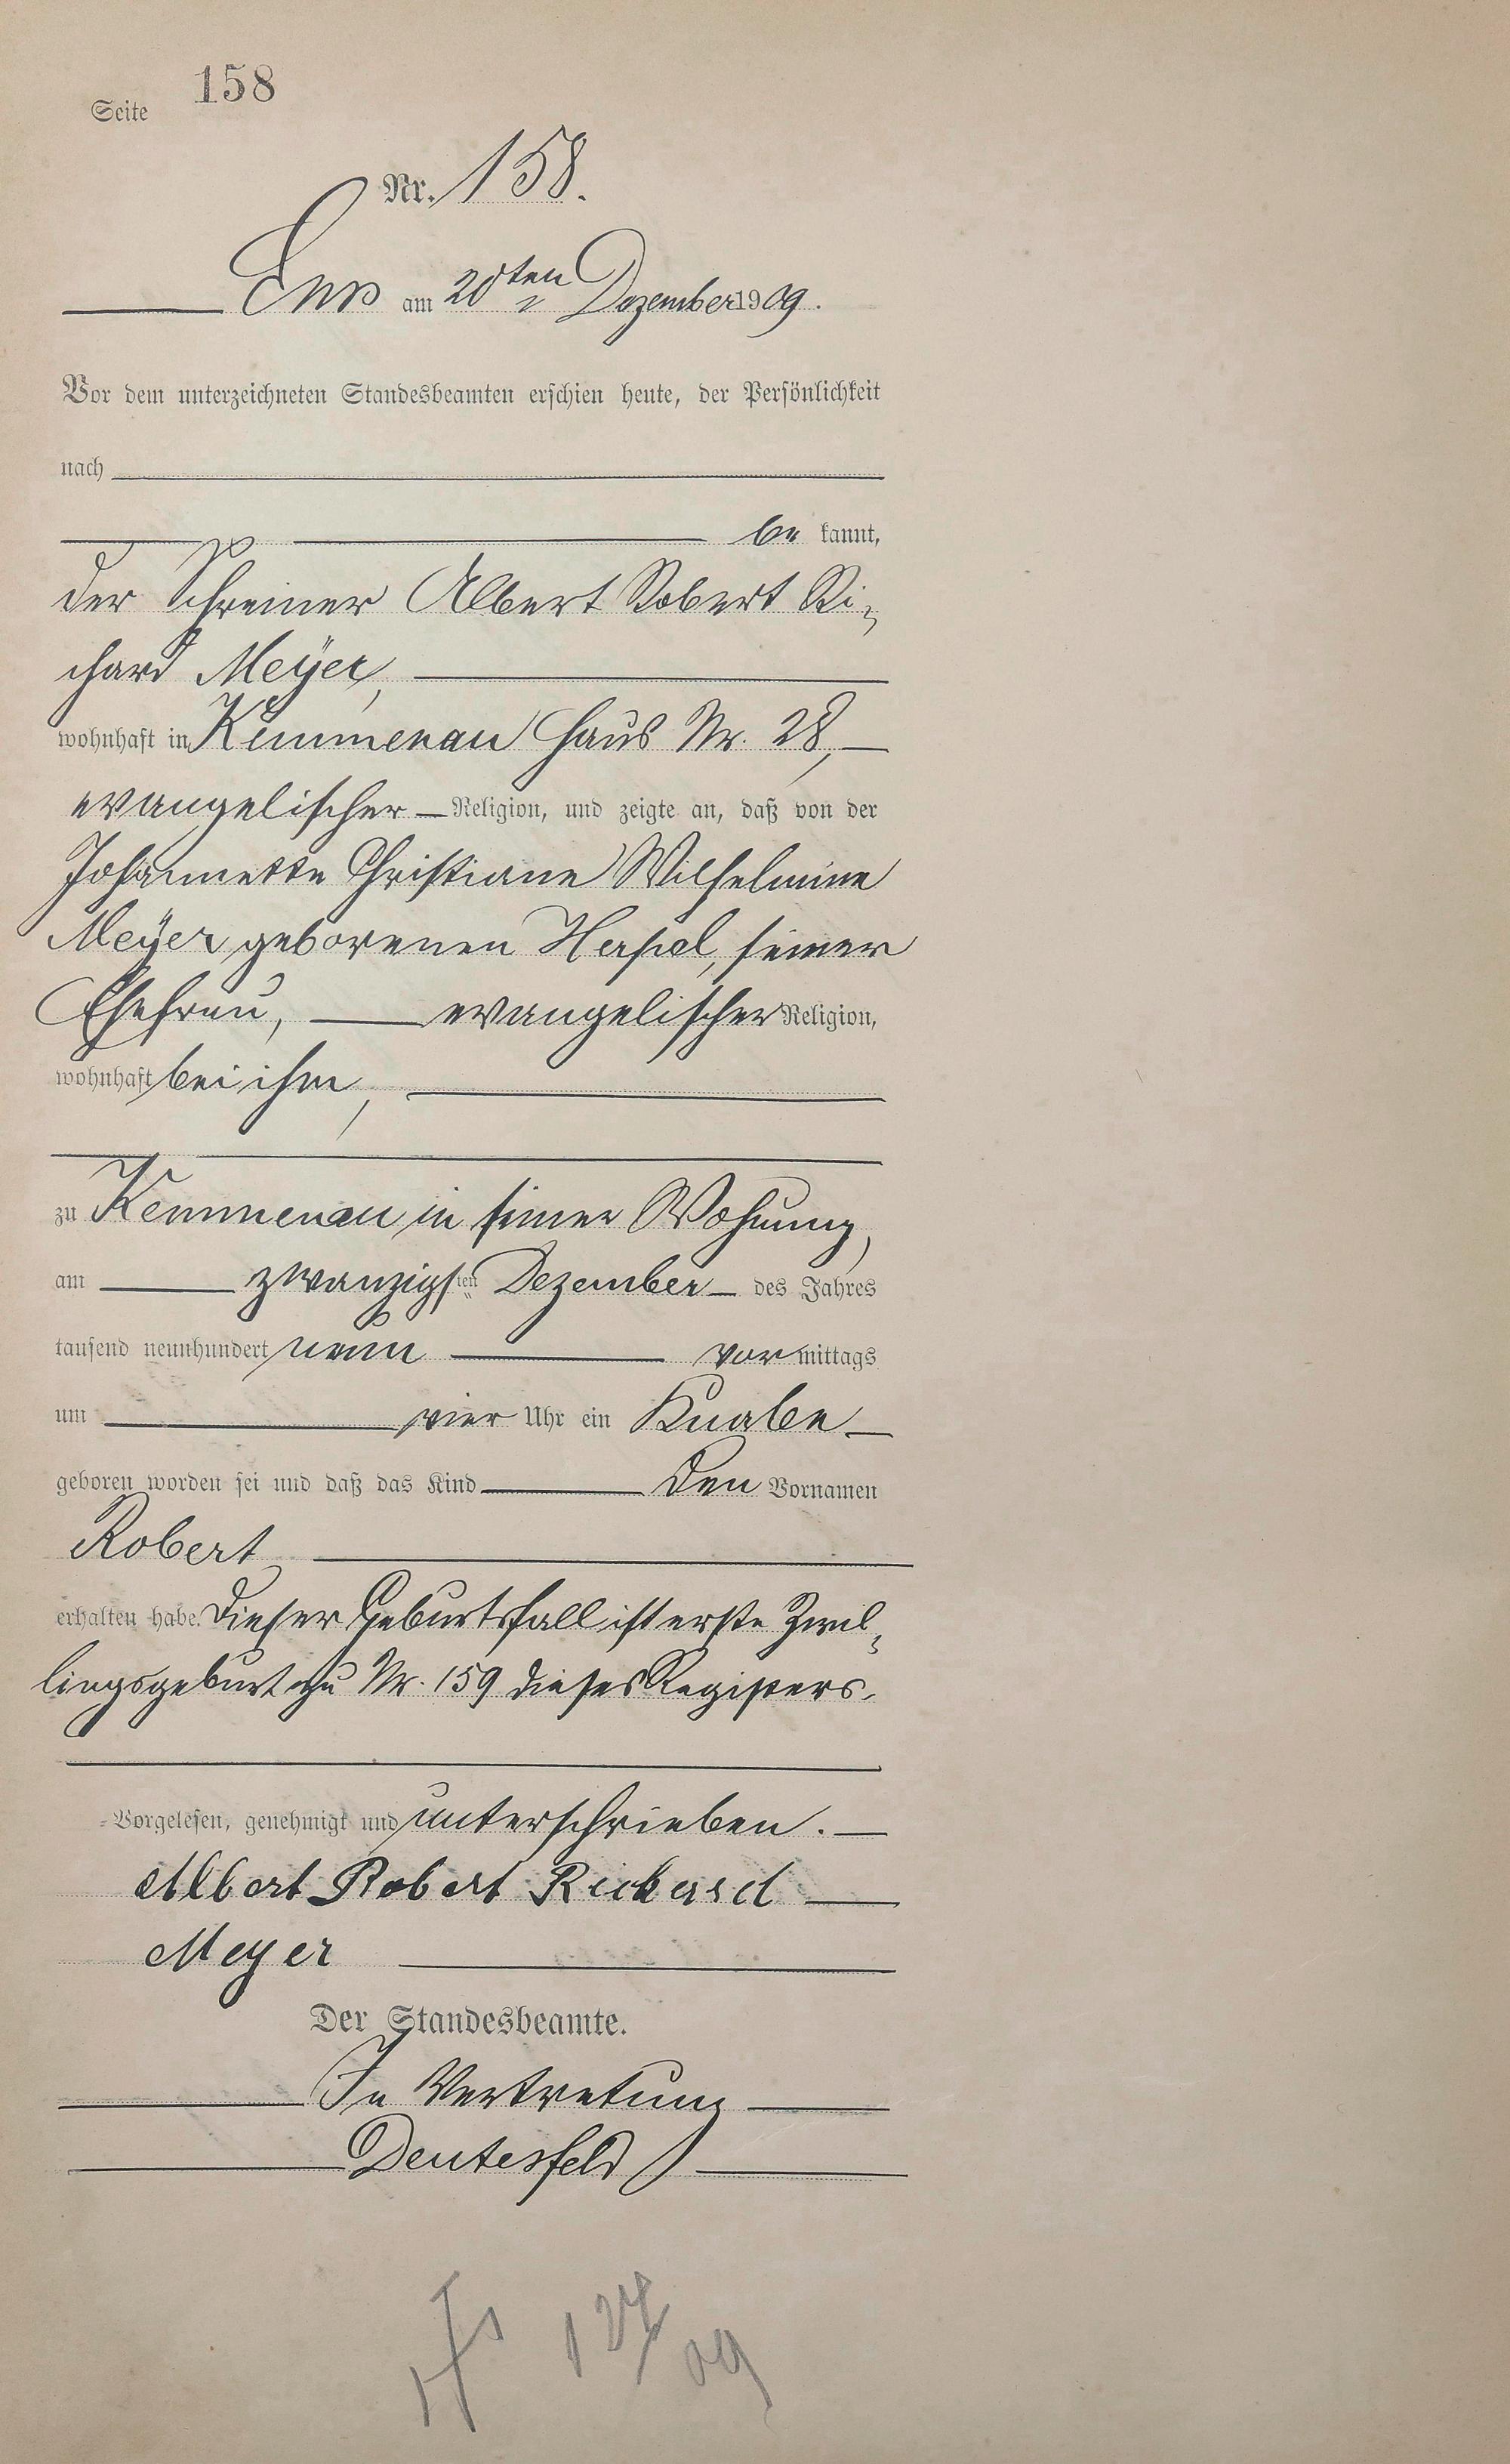 Seite 158
Nr. 158.
Ems am 20ten Dezember 1909.
Vor dem unterzeichneten Standesbeamten erschien heute, der Persönlichkeit
nach
be kannt,
der Schreiner Albert Robert Ri-
chard Meÿer,
wohnhaft in Kemmenau Haus Nr. 28,
evangelischer Religion, und zeigte an, daß von der
Johannette Christiane Wilhelmine
Meÿer geborenen Haspel, seiner
Ehefrau, evangelischer Religion,
wohnhaft bei ihm,
zu Kemmenau in seiner Wohnung,
am zwanzigsten Dezember des Jahres
tausend neunhundert neun vor mittags
um vier Uhr ein Knabe
geboren worden sei und daß das Kind den Vornamen
Robert
erhalten habe. Dieser Geburtsfall ist erste Zwil-
lingsgeburt zu Nr. 159 dieses Registers.
Vorgelesen, genehmigt und unterschrieben.
Albert Robert Richard
Meyer
Der Standesbeamte.
In Vertretung
Deutesfeld
127/09